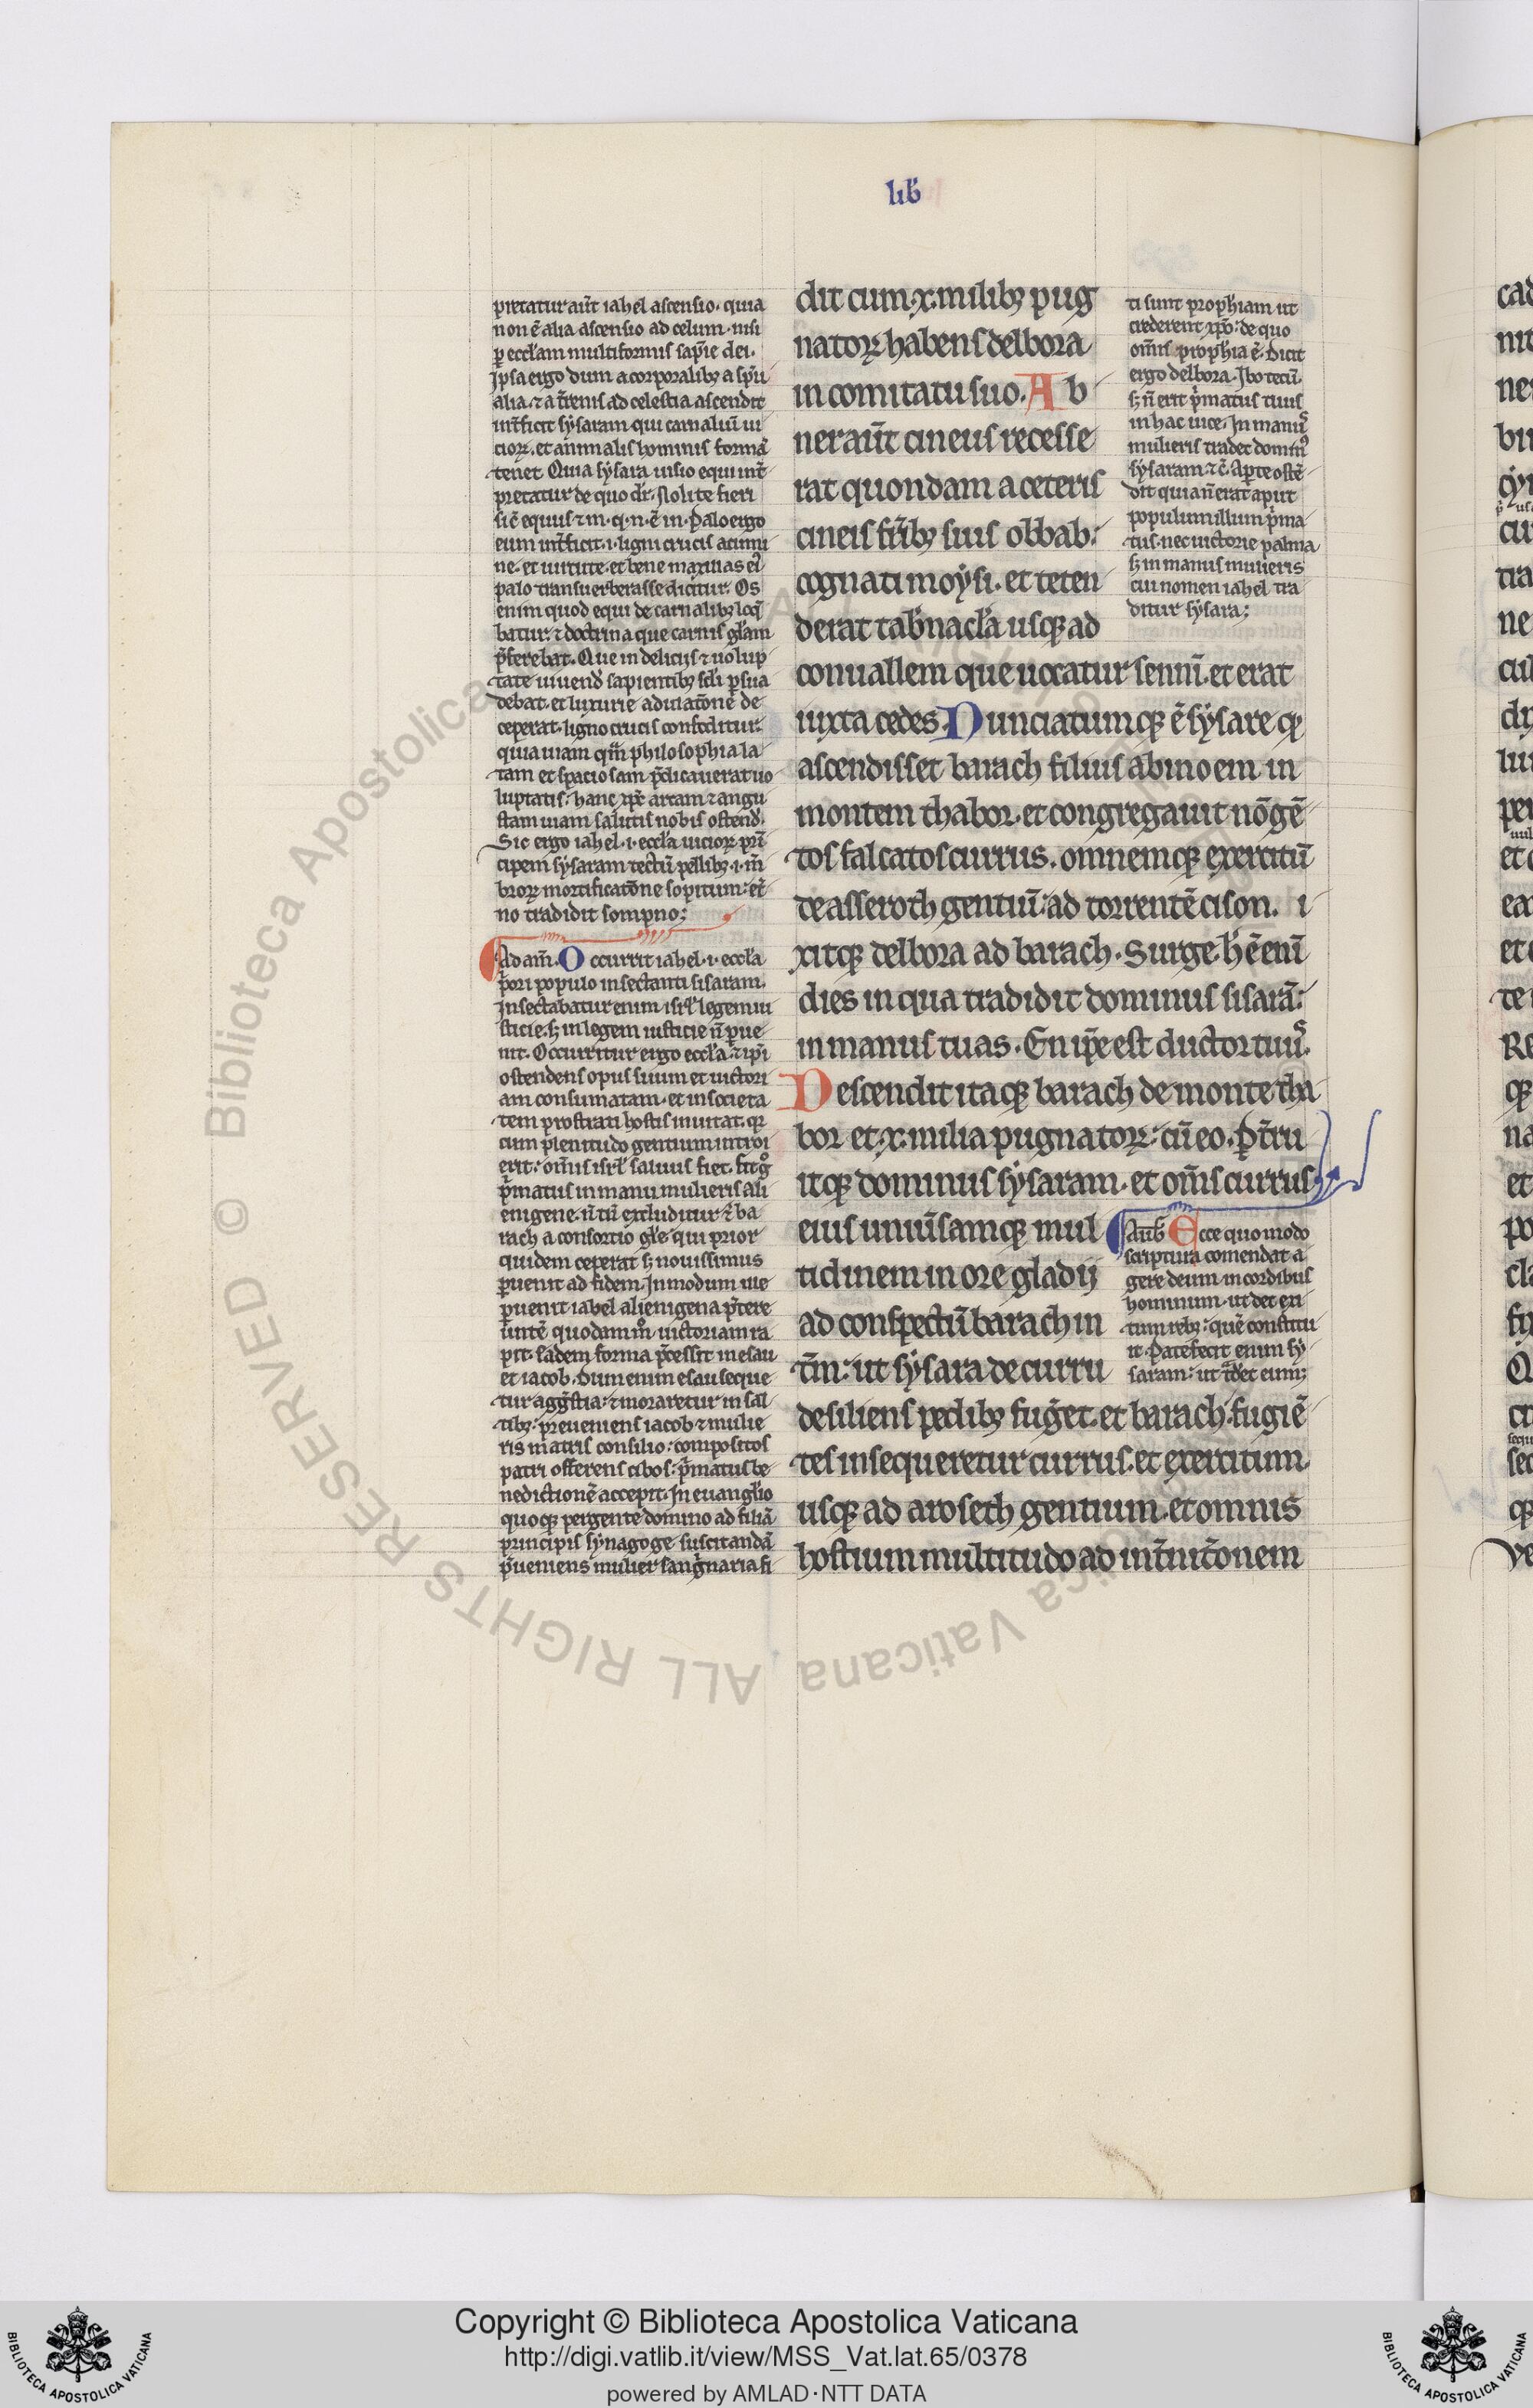 lib̃
p̃tatur aũt iahel ascensio. quia
non ẽ alia ascensio ad celum. nisi
p̱ ecclam multiformis sap̃ie dei.
Ipsa ergo dum a corporalibꝫ a spũ
alia. ⁊ a t̃renis ad celestia ascendit
int̃ficit sẏsaram qui carnaliũ ui
cioꝝ. et animalis hominis formã
tenet. Quia sẏsara uisio equi int̃
pretatur de quo dr̃. Nolite fieri
sic̃ equus ⁊ m. q. n. ẽ in. Palo ergo
eum int̃ficit .i. ligni crucis acumi
ne. et uirtute. et bene maxillas eiꝰ
palo transuerberasse dicitur. Os
enim quod equi de carnalibꝫ loq̃
batur. ⁊ doctrina que carnis gl̃am
p̃ferebat. Que in delicijs ⁊ uolup
tate uiuend̃ sapientibꝫ sc̃li p̱sua
debat. et luxurie adulat̃one de
ceperat. ligno crucis confoditur.
quia uiam qm̃ philosophia la
tam et spaciosam p̃dicauerat uo
luptatis: hanc xp̃c artam ⁊ angu
stam uiam salutis nobis ostend̃.
Sic ergo iahel .i. eccl̃a uicioꝝ prĩ
cipem sẏsaram tectũ pellibꝫ .i. m̃
broꝝ mortificat̃one sopitum: et̃
no tradidit sompno;
Adam̃. Occurrit iahel .i. eccl̃a
p̱ori populo insectanti sisaram.
Insectabatur enim isrl̃ legem iu
sticie. sꝫ in legem iusticie ñ p̱ue
nit. Occurritur ergo eccl̃a. ⁊ ip̃i
ostendens opus suum et uictori
am consumatam. et in societa
tem prostrati hostis inuitat. qꝛ
cum plenitudo gentium introi
erit: om̃is isrl̃ saluus fiet. fit gͦ
p̃matus in manu mulieris ali
enigene. ñ tñ excluditur ⁊̃ ba
rach a consortio gl̃e. qui prior
quidem ceperat sꝫ nouissimus
p̱uenit ad fidem. In modum itíne
p̱uenit iahel alienigena p̃tere
untẽ quodam mͦ. uictoriam ra
pit. Eadem forma p̃cessit in esau
et iacob. Dum enim esau seque
tur agg̃stia: ⁊ moraretur in sal
tibꝫ: preueniens iacob ⁊ mulie
ris matris consilio: compositos
patri offerens cibos: p̃matus be
nedictionẽ accepit. In euanglio
quoqꝫ pergente domino ad filiã
principis sẏnagoge suscitandã
p̃ueniens mulier sang̃naria fi
dit cum .x. milibꝫ pug
natoꝝ habens delbora
in comitatu suo. Ab
ner aũt cineus recesse
rat quondam a ceteris
cineis fr̃ibꝫ suis obbab:
cognati moẏsi. et teten
derat tab̃nacl̃a usqꝫ ad
conuallem que uocatur sennĩ. et erat
iuxta cedes. Nunciatumqꝫ ẽ sẏsare qꝫ
ascendisset barach filius abinoem in
montem thabor. et congregauit nõgẽ
tos falcatos currus. omnemqꝫ exercitũ
de asseroth gentiũ: ad torrentẽ cison. i
xitqꝫ delbora ad barach. Surge. h̃ ẽ enĩ
dies in qua tradidit dominus sisarã:
in manus tuas. En ip̃e est ductor tuuꝰ.
Descendit itaqꝫ barach de monte tha
bor et .x. milia pugnatoꝝ: cũ eo. P̱t̃ru
itqꝫ dominus sẏsaram. et om̃is currus
eius uniũsamqꝫ mul
titudinem in ore gladij
ad conspectũ barach in
t̃m: ut sẏsara de curru
desiliens pedibꝫ fug̃et. et barach. fugiẽ
tes insequeretur currus. et exercitum
usqꝫ ad aroseth gentium. et omnis
hostium multitudo ad int̃nit̃onem
ti sunt prophiam ut
crederent xp̃o: de quo
om̃is prophia ẽ. Dicit
ergo delbora. Ibo tecũ.
sꝫ ñ erit p̃matus tuus
in hac uice. In manuꝰ
mulieris tradet dominꝰ
sẏsaram ⁊c̃. Aperte ostẽ
dit quia ñ erat aput
populum illum p̃ma
tus. nec uictorie palma
sꝫ in manus mulieris
cui nomen iahel tra
ditur sẏsara;
Aug̃ Ecce quomodo
scriptura comendat a
gere deum in cordibus
hominum. ut det exi
tum rebꝫ: quẽ constitu
it. Patefecit enim sẏ
saram: ut tͣdet eum;
© Biblioteca Apostolica Vaticana ALL RIGHTS RESERVED
Copyright © Biblioteca Apostolica Vaticana
http://digi.vatlib.it/view/MSS_Vat.lat.65/0378
powered by AMLAD·NTT DATA
BIBLIOTECA APOSTOLICA VATICANA
BIBLIOTECA APOSTOLICA VATICANA